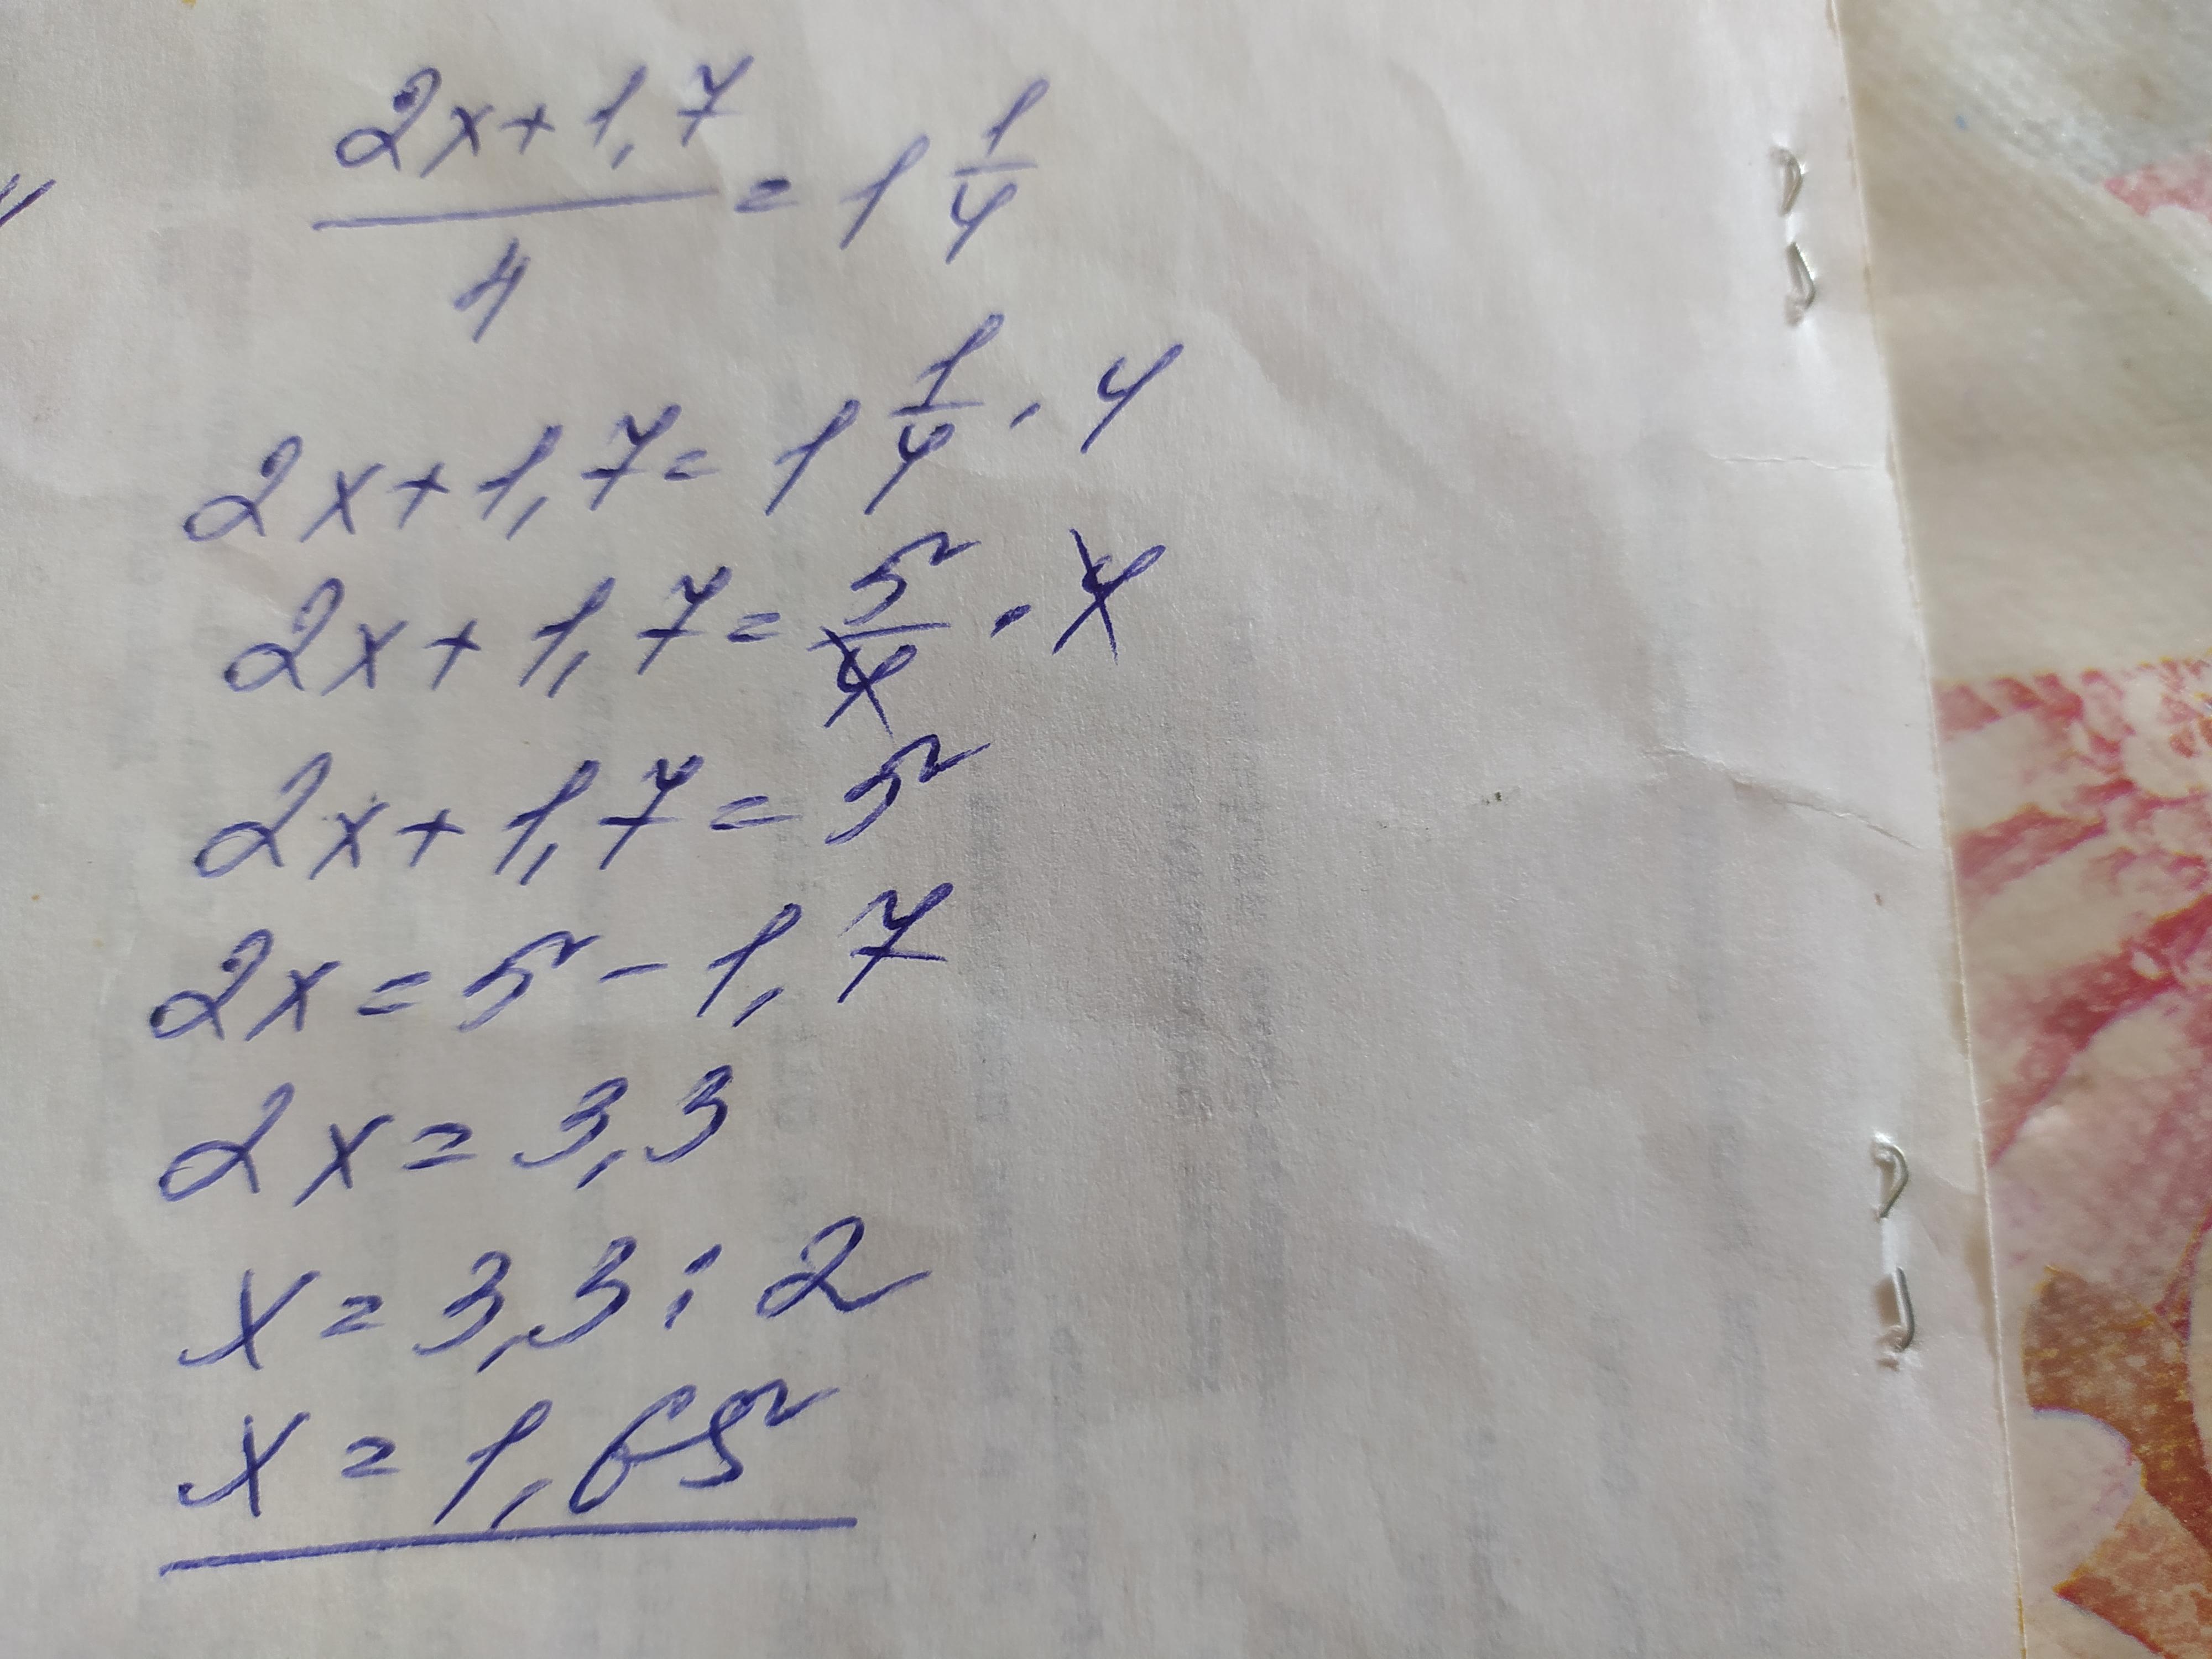 (2x+1,7)/4 = 1 1/4
2x+1,7= 1 1/4 · 4
2x+1,7= 5/4 · 4
2x+1,7=5
2x=5-1,7
2x=3,3
x=3,3:2
x=1,65